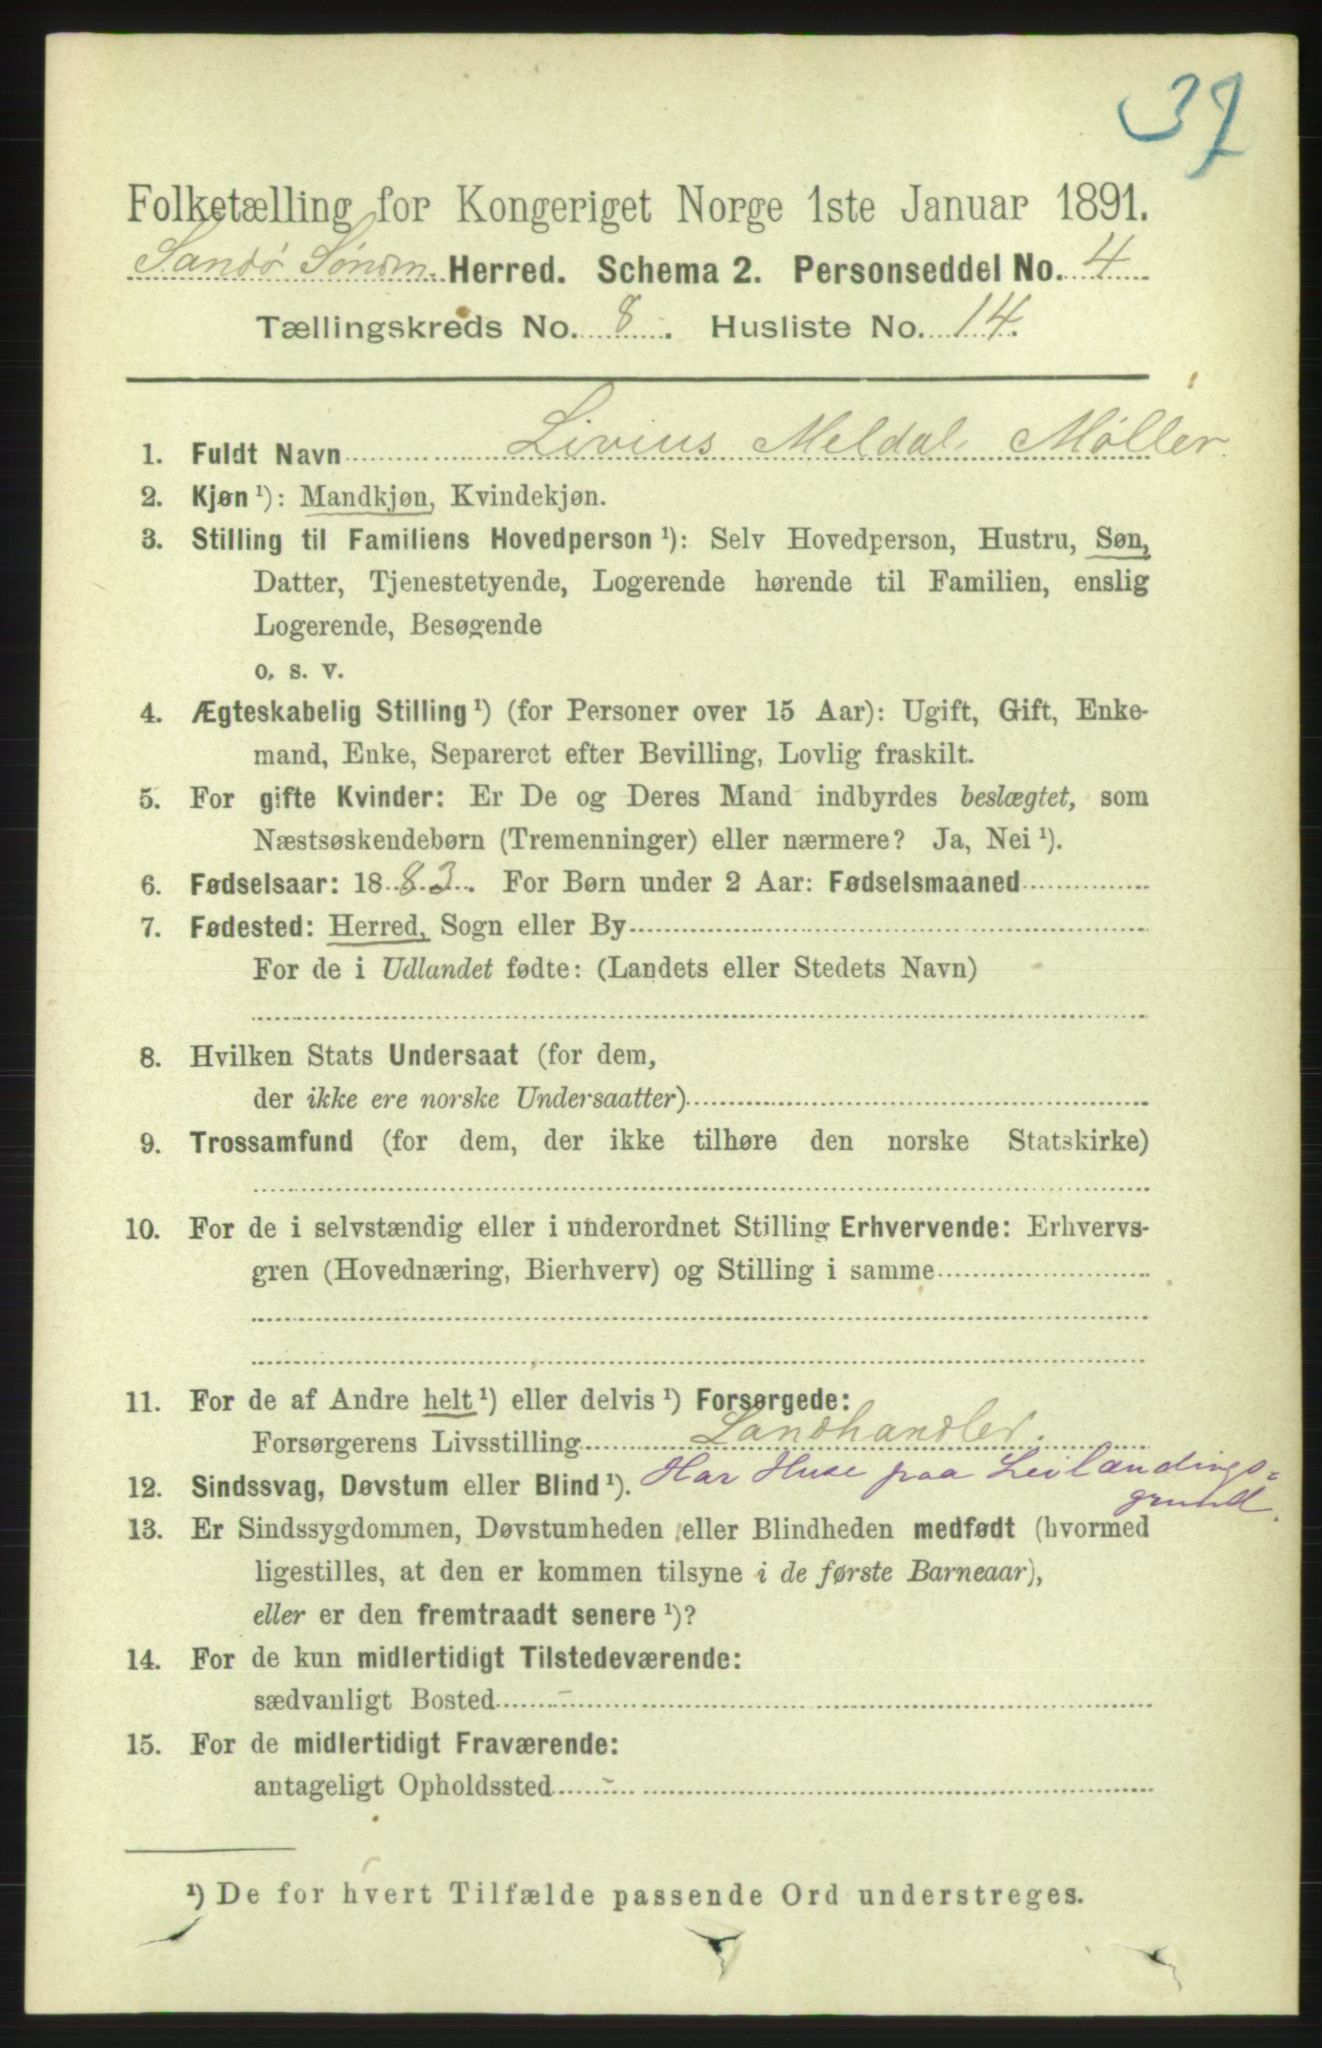 37
Folketælling for Kongeriget Norge 1ste Januar 1891.
Sandø Søndm. Herred. Schema 2. Personseddel No. 4
Tællingskreds No. 8. Husliste No. 14.
1. Fuldt Navn Livius Meldal Møller.
2. Kjøn ¹): Mandkjøn, Kvindekjøn.
3. Stilling til Familiens Hovedperson ¹): Selv Hovedperson, Hustru, Søn,
Datter, Tjenestetyende, Logerende hørende til Familien, enslig
Logerende, Besøgende
o. s. v.
4. Ægteskabelig Stilling ¹) (for Personer over 15 Aar): Ugift, Gift, Enke-
mand, Enke, Separeret efter Bevilling, Lovlig fraskilt.
5. For gifte Kvinder: Er De og Deres Mand indbyrdes beslægtet, som
Næstsøskendebørn (Tremenninger) eller nærmere? Ja, Nei ¹).
6. Fødselsaar: 1883. For Børn under 2 Aar: Fødselsmaaned
7. Fødested: Herred, Sogn eller By
For de i Udlandet fødte: (Landets eller Stedets Navn)
8. Hvilken Stats Undersaat (for dem,
der ikke ere norske Undersaatter)
9. Trossamfund (for dem, der ikke tilhøre den norske Statskirke)
10. For de i selvstændig eller i underordnet Stilling Erhvervende: Erhvervs-
gren (Hovednæring, Bierhverv) og Stilling i samme
11. For de af Andre helt ¹) eller delvis ¹) Forsørgede:
Forsørgerens Livsstilling Landhandler.
12. Sindssvag, Døvstum eller Blind ¹). Har Huse paa Leilændings-
grund.
13. Er Sindssygdommen, Døvstumheden eller Blindheden medfødt (hvormed
ligestilles, at den er kommen tilsyne i de første Barneaar),
eller er den fremtraadt senere ¹)?
14. For de kun midlertidigt Tilstedeværende:
sædvanligt Bosted -
15. For de midlertidigt Fraværende:
antageligt Opholdssted -
¹) De for hvert Tilfælde passende Ord understreges.